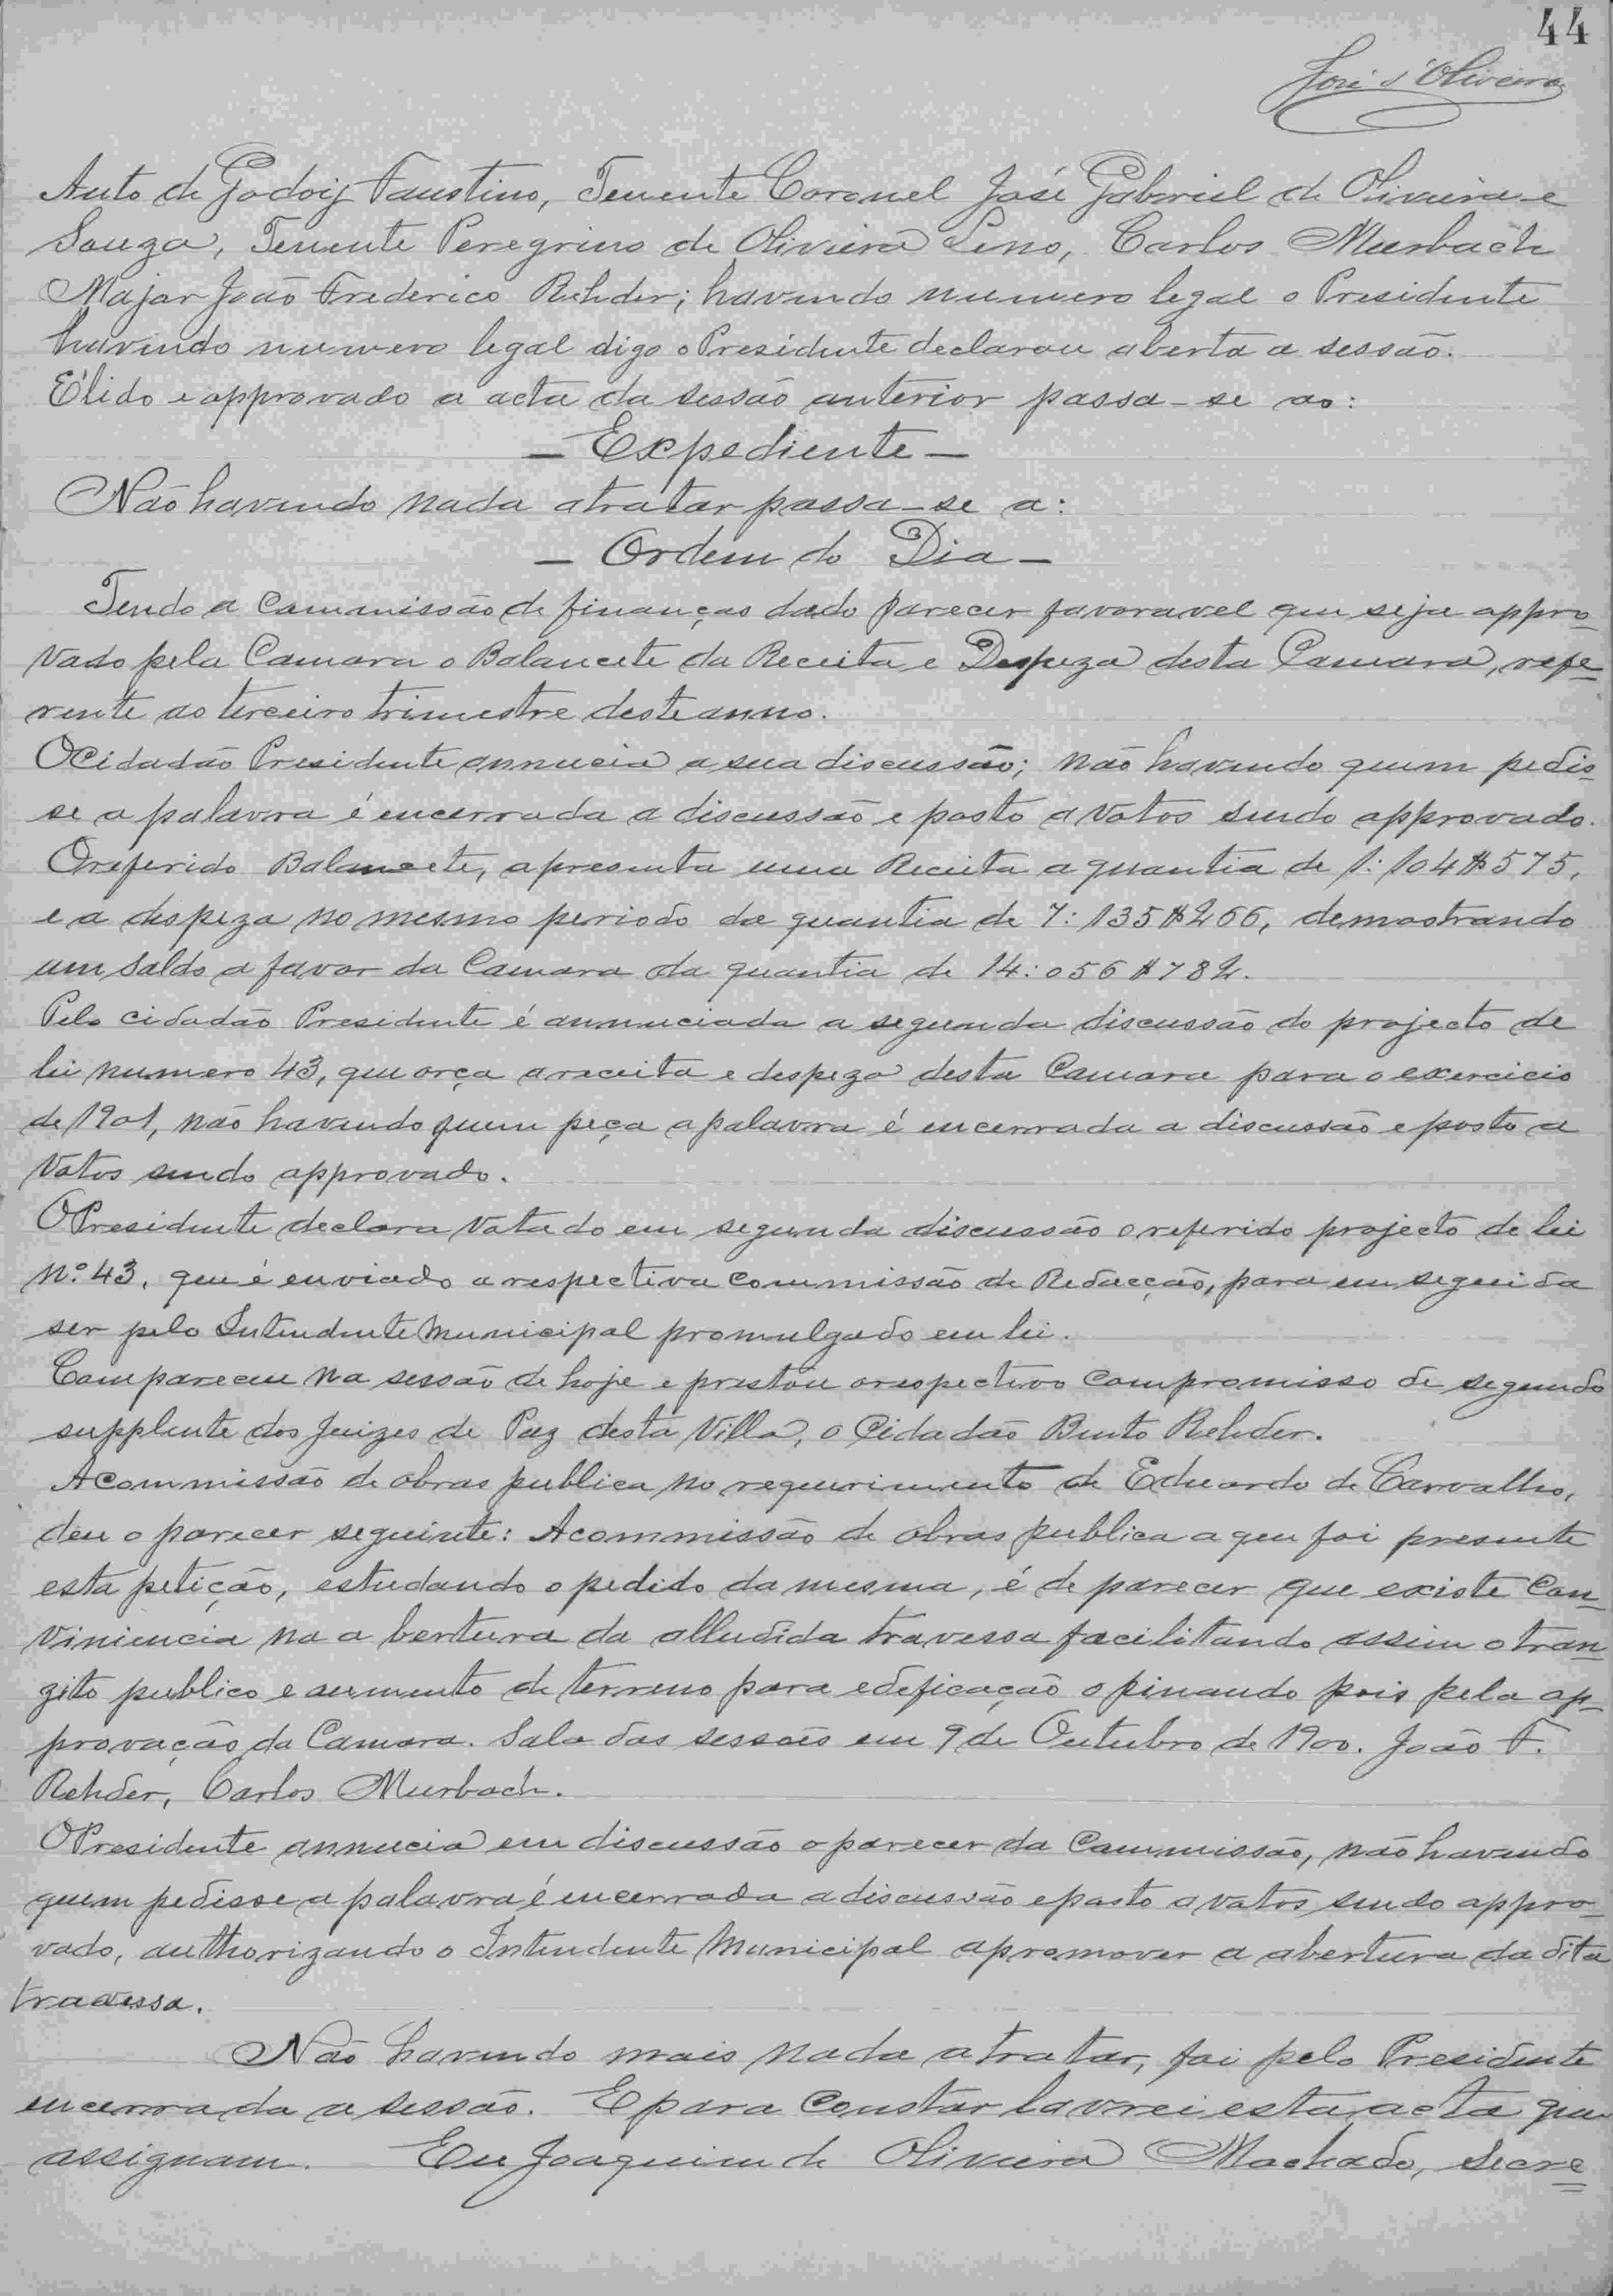 44
José d'Oliveira
Auto de Godoÿ Faustino, Tenente Coronel José Gabriel de Oliveira e
Souza, Tenente Peregrino de Oliviera Lino, Carlos Murbach
Major João Frederico Rehder; havendo numero legal o Presidente
havindo numero legal digo o Presidente declarou aberta a sessão.
É lido e approvado a acta da sessão anterior passa-se ao:
— Expediente —
Não havendo nada a tratar passa-se a:
— Ordem do Dia —
Tendo a Commissão de finanças dado parecer favoravel que seja appro-
vado pela Camara o Balancete da Receita e Despeza desta Camara, refe-
rente ao terceiro trimestre deste anno.
O Cidadão Presidente annucia a sua discussão; não havendo quem pedis-
se a palavra é encerrada a discussão e posto a votos sendo approvado.
O referido Balancete, apresenta uma Receita a quantia de 1:104$575,
e a despeza no mesmo periodo da quantia de 7:135$266, demostrando
um saldo a favor da Camara da quantia de 14:056$782.
Pelo cidadão Presidente é annunciada a segunda discussão do projecto de
lei numero 43, que orça a receita e despeza desta Camara para o exercicio
de 1901, não havendo quem peça a palavra é encerrada a discussão e posto a
votos sendo approvado.
O Presidente declara votado em segunda discussão o referido projecto de lei
Nº 43, que é enviado a respectiva Commissão de Redacção, para em seguida
ser pelo Intendente Municipal promulgado em lei.
Compareceu na sessão de hoje e prestou o respectivo compromisso de segundo
supplente dos Juizes de Paz desta Villa, o Cidadão Bento Rehder.
A Commissão de obras publica no requerimento de Eduardo de Carvalho,
deu o parecer seguinte: A commissão de obras publica a que foi presente
esta petição, estudando o pedido da mesma, é de parecer que existe con-
viniencia na abertura da alludida travessa facilitando assim o tran-
zito publico e aumento de terreno para edeficação opinando pois pela ap-
provação da Camara. Sala das sessões em 9 de Outubro de 1900. João F.
Rehder, Carlos Murbach.
O Presidente annucia em discussão o parecer da Commissão, não havendo
quem pedisse a palavra é encerrada a discussão e posto a votos sendo appro-
vado, authorizando o Intendente Municipal a promover a abertura da dita
travessa.
Não havendo mais nada a tratar, foi pelo Presidente
encerrada a sessão. E para constar lavrei esta acta que
assignam. Eu Joaquim de Oliveira Machado, Secre=